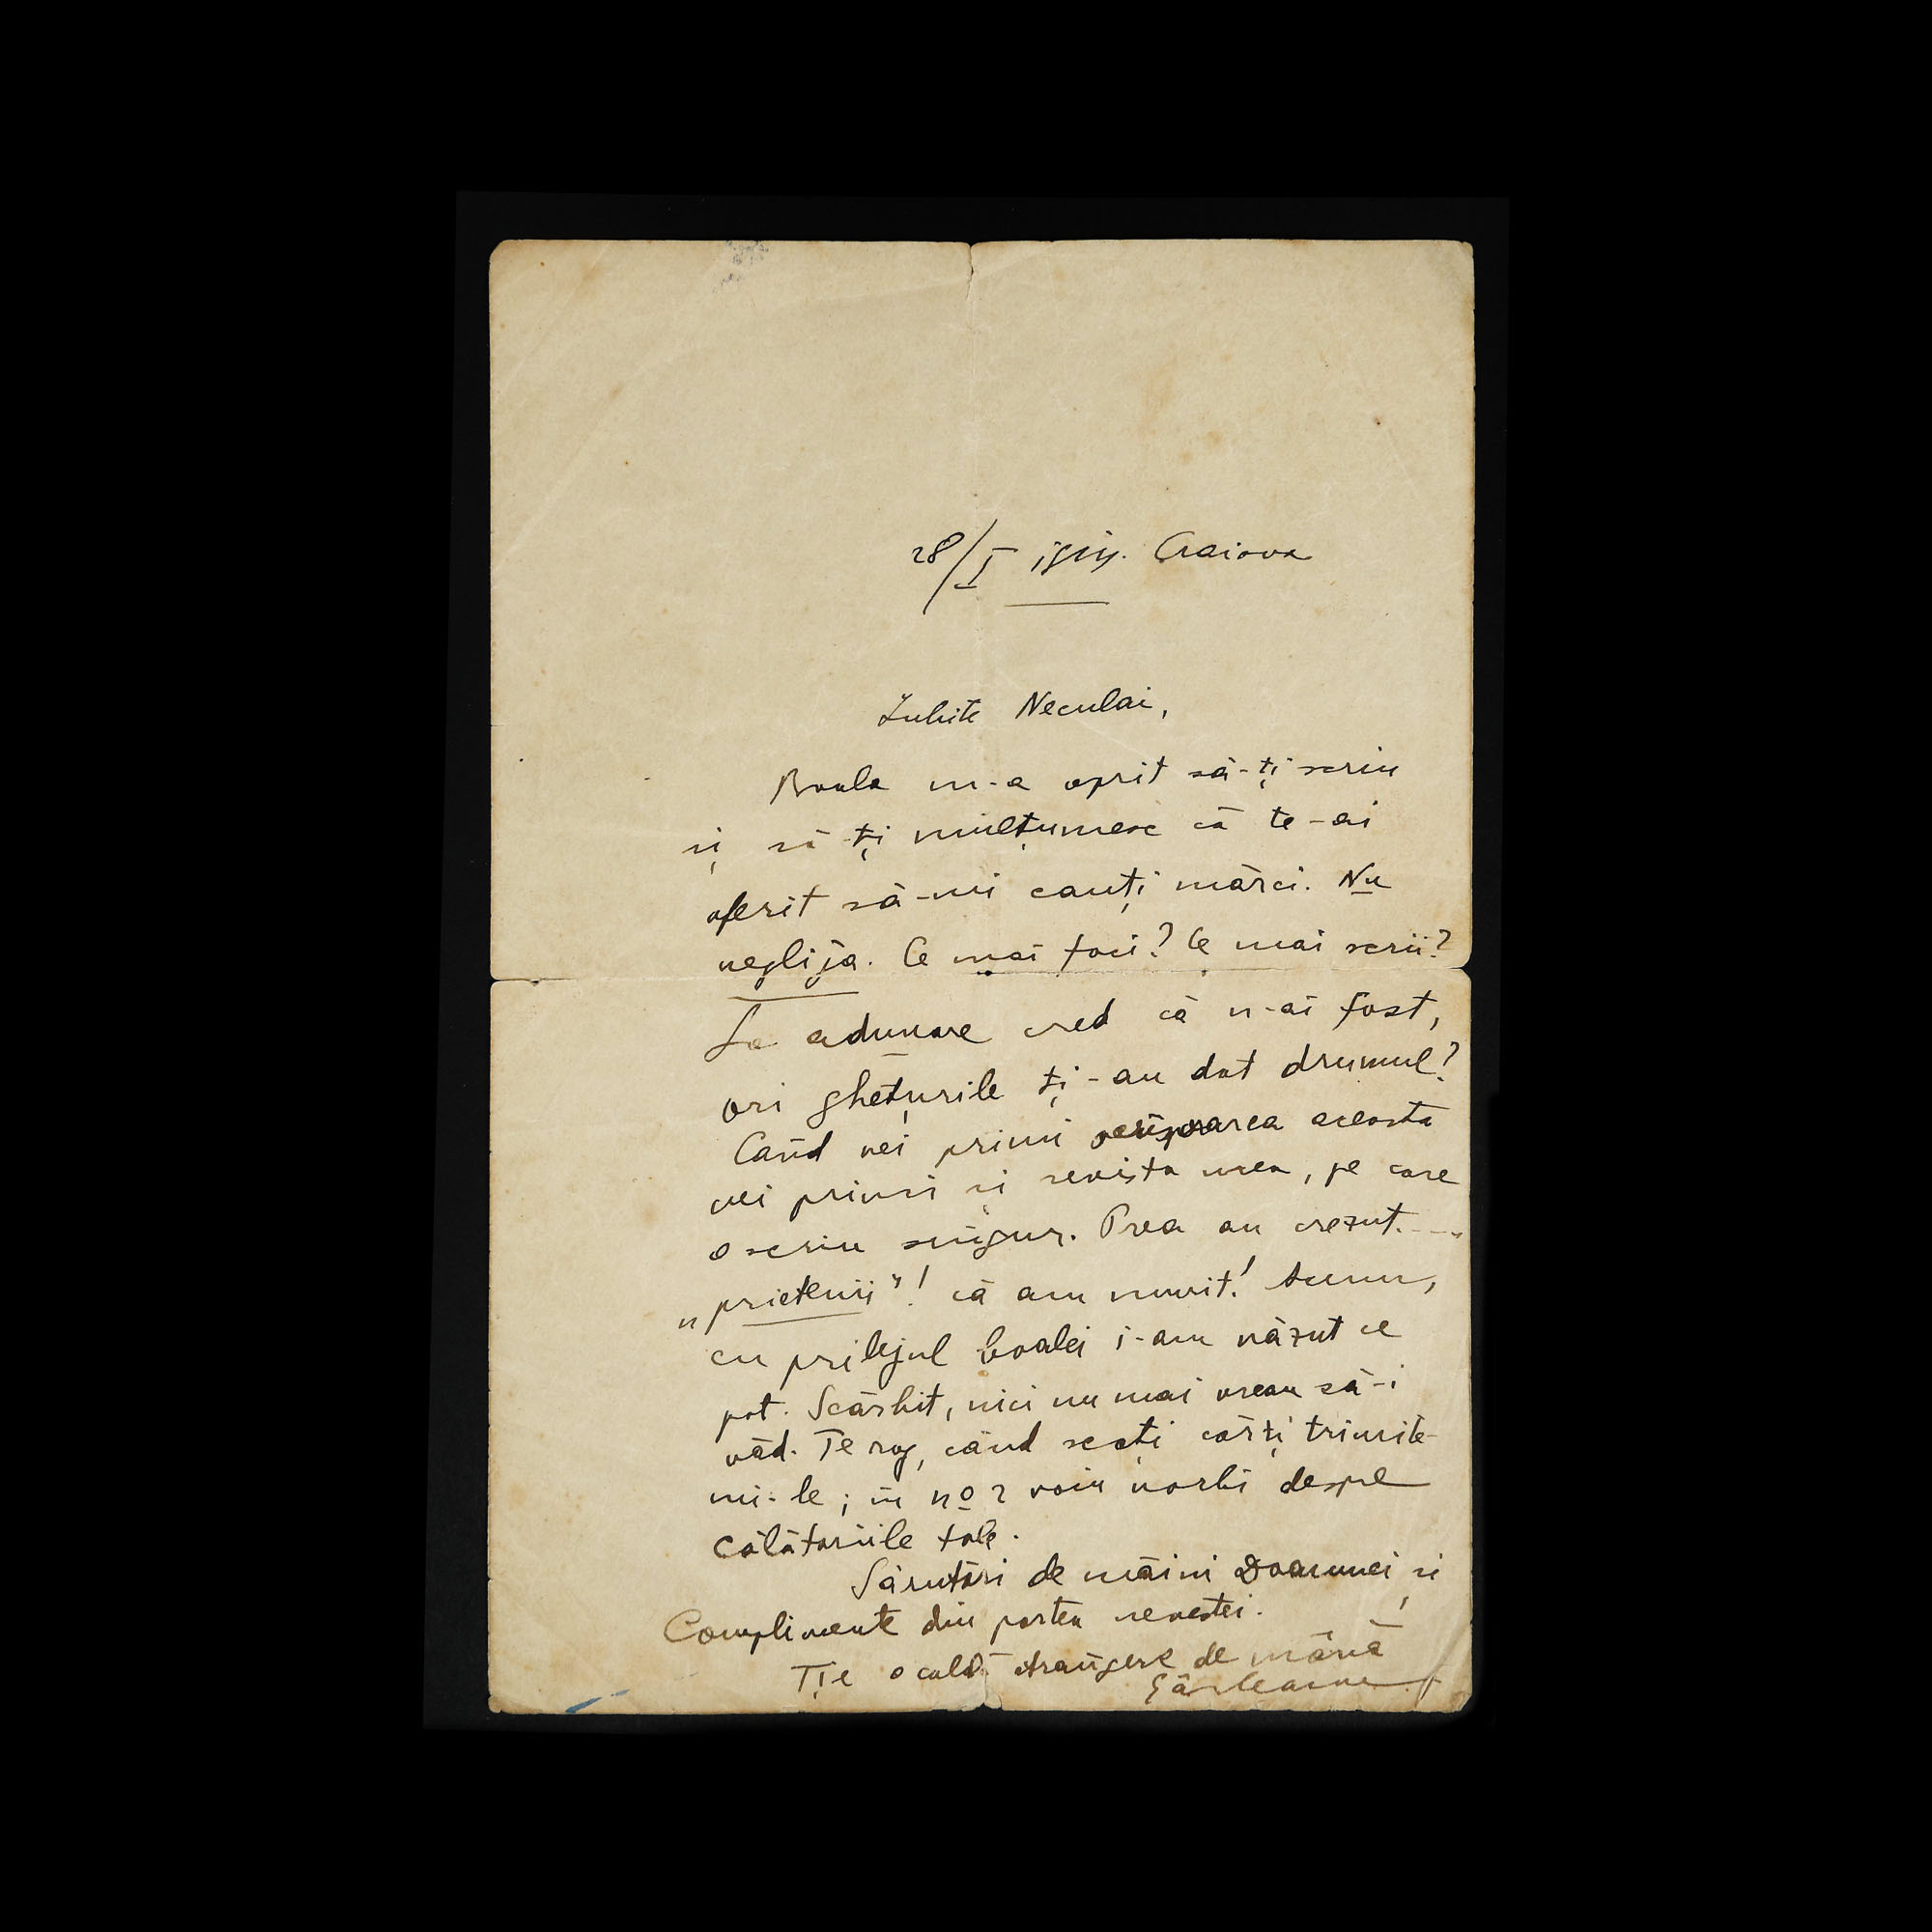 28/I 1914. Craiova
Iubite Neculai,
Boala m-a oprit să-ți scriu
și să-ți mulțumesc că te-ai
oferit să-mi cauți mărci. Nu
neglija. Ce mai faci? Ce mai scrii?
La adunare cred că n-ai fost,
ori ghețurile ți-au dat drumul?
Când vei primi scrisoarea aceasta
vei primi și revista mea, pe care
o scriu singur. Prea au crezut....
„prietenii”! că am murit! Acum,
cu prilejul boalei i-am văzut ce
pot. Scârbit, nici nu mai vreau să-i
văd. Te rog, când scoți cărți trimite-
mi-le; în no 2 voiu vorbi despre
călătoriile tale.
Sărutări de mâini Doamnei și
Complimente din partea nevestei.
Ție o caldă strângere de mână
Gârleanu